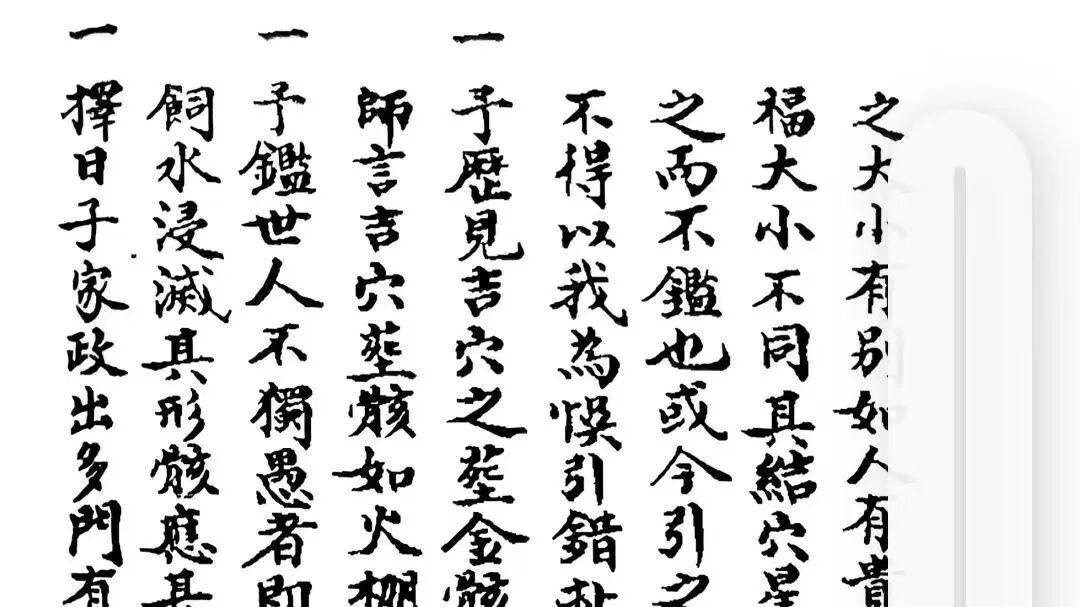 之大小有別如人有貴
福大小不同其結穴星
之而不鑑也或今引之
不得以我為悞引錯
一予歷見吉穴之塟金骸
師言吉穴塟骸如火棚
一予鑑世人不獨愚者即
飼水浸滅其形骸應其
一擇日子家政出多門有